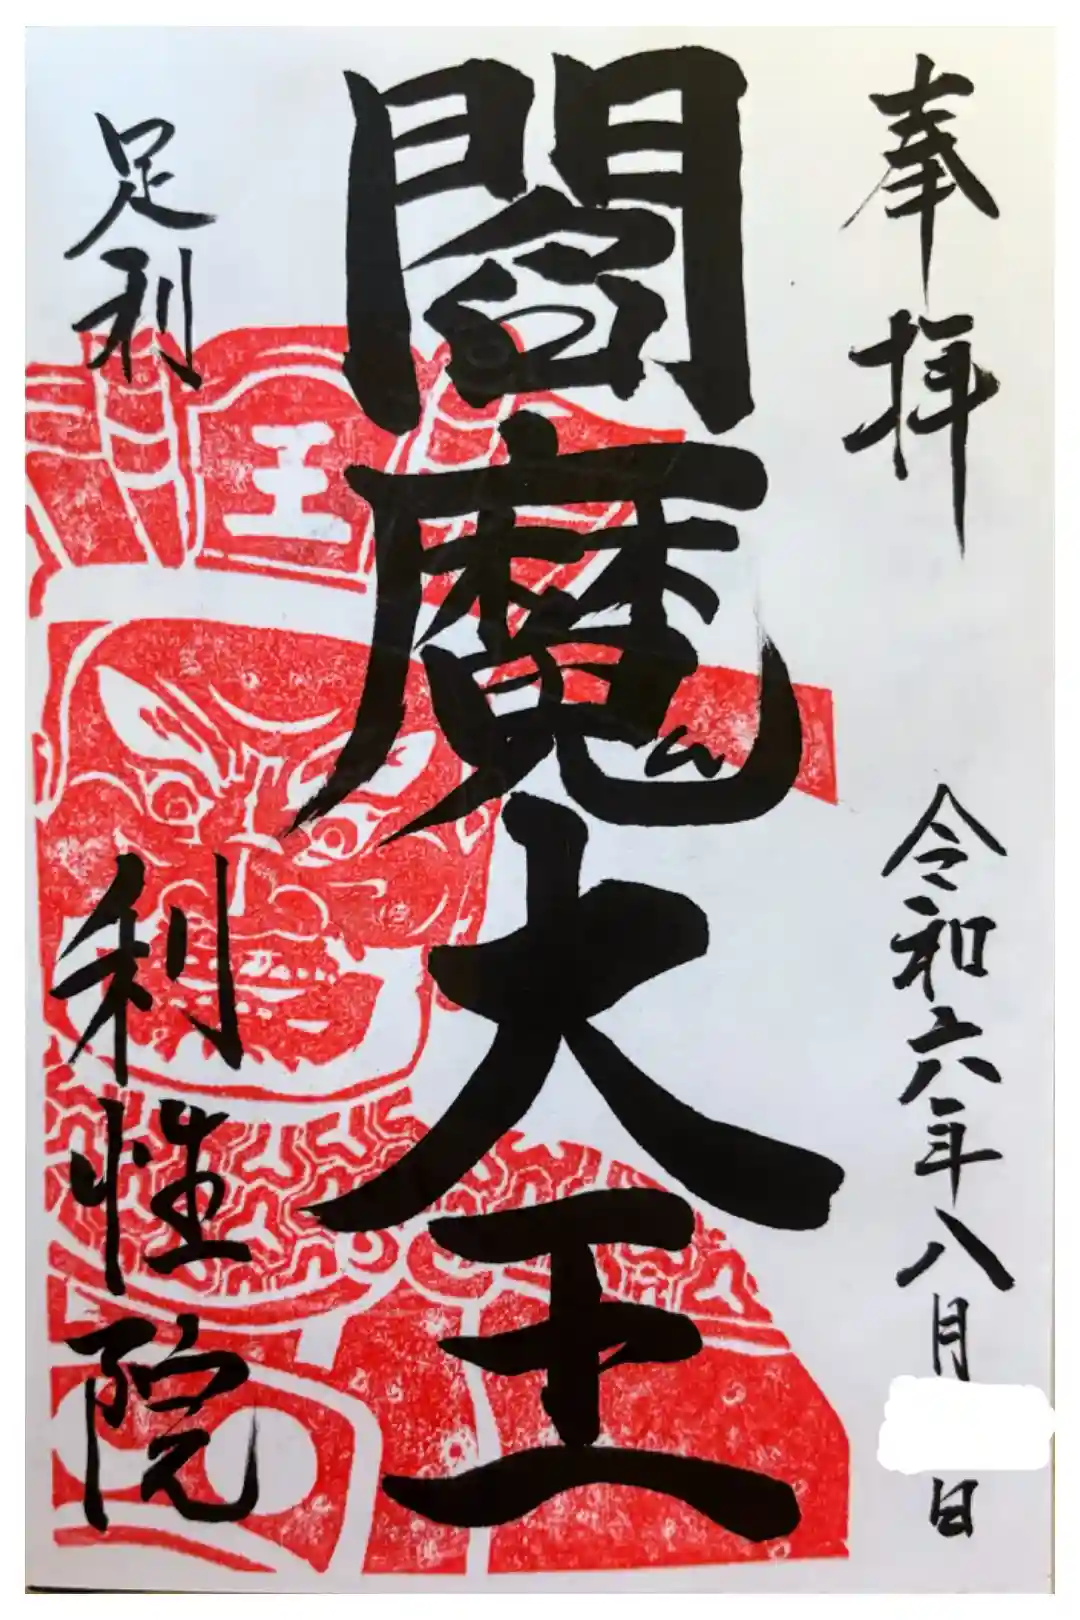 奉拝
令和六年八月
日
閻魔大王
王
足利
利性院